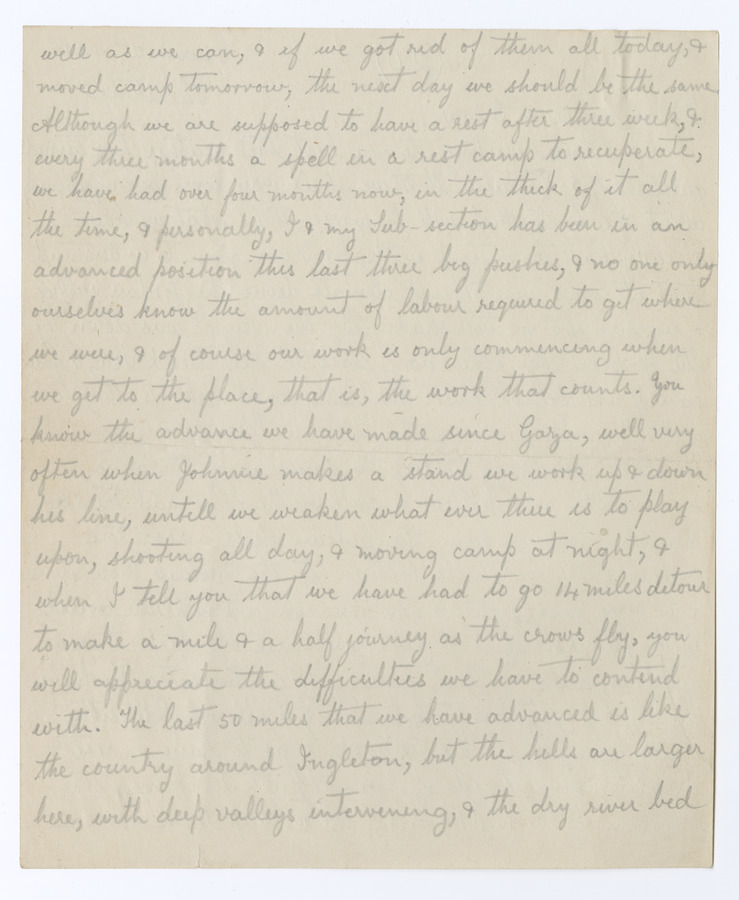 well as we can, & if we got rid of them all today, &
moved camp tomorrow, the next day we should be the same.
Although we are supposed to have a rest after three week, &
every three months a spell in a rest camp to recuperate,
we have had over four months now, in the thick of it all
the time, & personally, I & my Sub-section has been in an
advanced position this last three big pushes, & no one only
ourselves know the amount of labour required to get where
we were, & of course our work is only commencing when
we get to the place, that is, the work that counts. You
know the advance we have made since Gaza, well very
often when Johnnie makes a stand we work up & down
his line, untill we weaken what ever there is to play
upon, shooting all day, & moving camp at night, &
when I tell you that we have had to go 14 miles detour
to make a mile & a half journey as the crows fly, you
will appreciate the difficulties we have to contend
with. The last 50 miles that we have advanced is like
the country around Ingleton, but the hills are larger
here, with deep valleys intervening, & the dry river bed